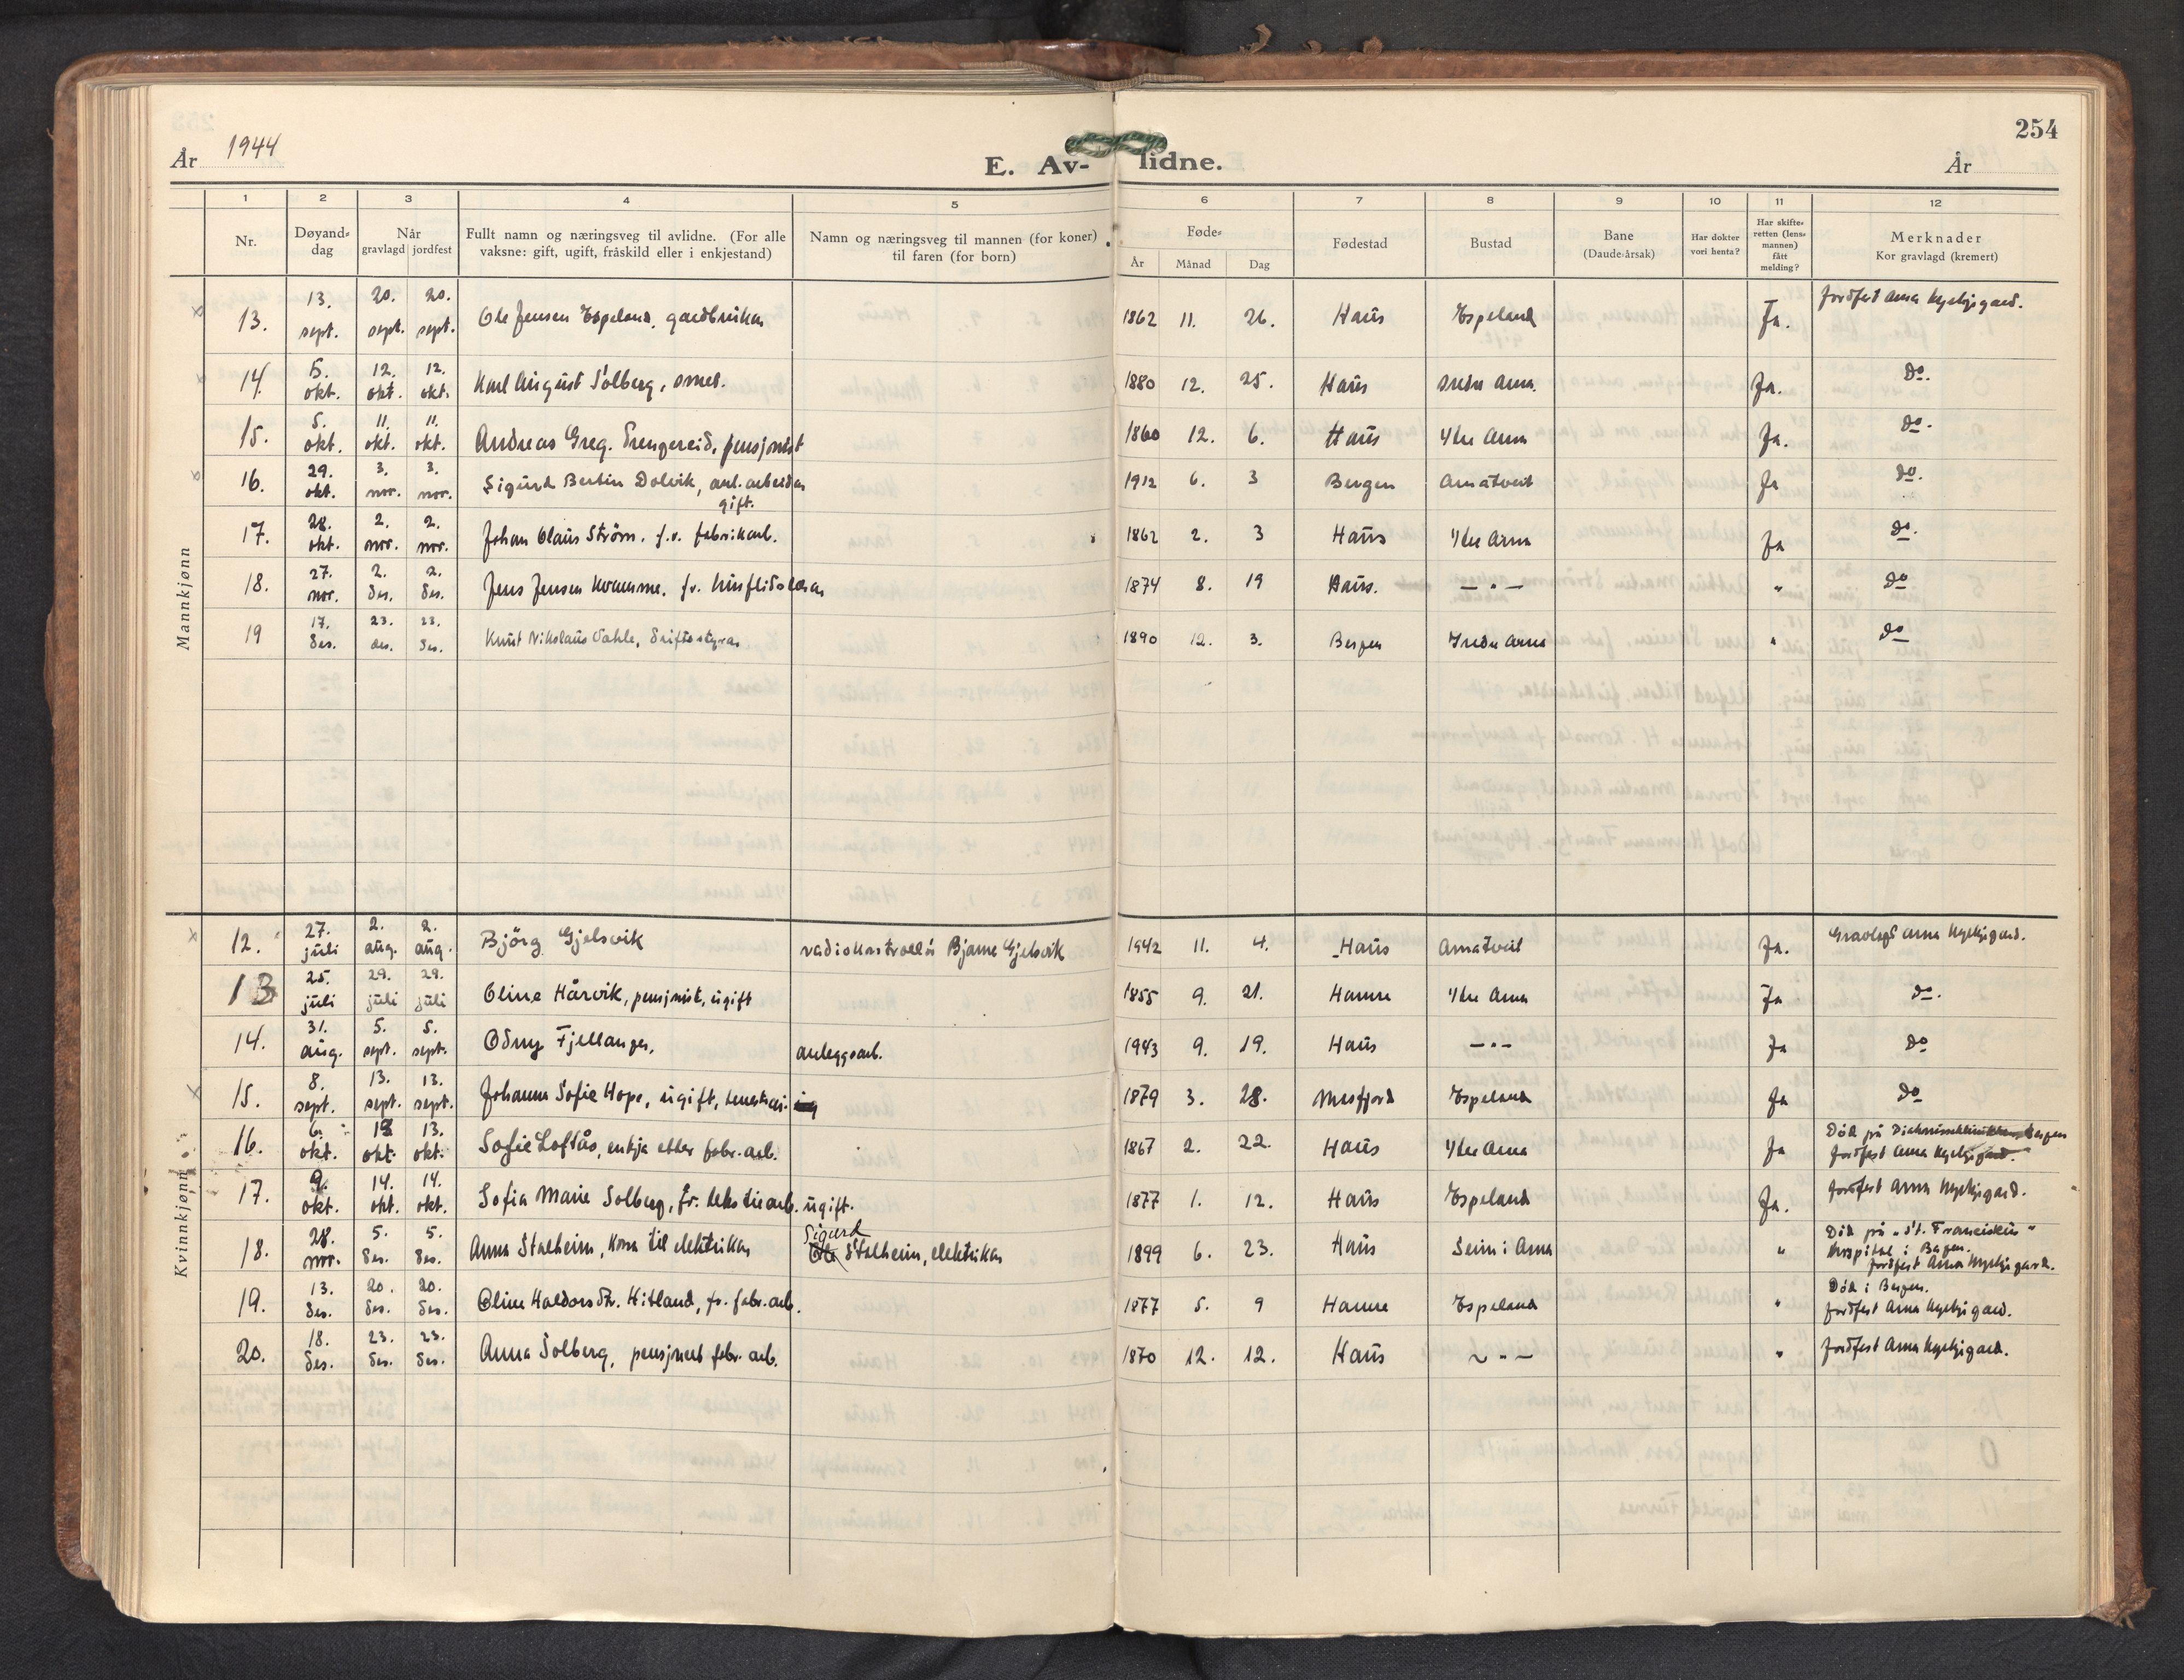 254
År 1944
E. Avlidne.
År
1 2 3 4 5 6 7 8 9 10 11 12
Nr.
Døyand-dag
Når
gravlagd jordfest
Fullt namn og næringsveg til avlidne. (For alle
vaksne: gift, ugift, fråskild eller i enkjestand)
Namn og næringsveg til mannen (for koner)
til faren (for born)
Føde-
År Månad Dag
Fødestad
Bustad
Bane
(Daude-årsak)
Har dokter
vori henta?
Har skifte-
retten (lens-
mannen)
fått
melding?
Merknader
Kor gravlagd (kremert)
Mannkjønn
13. 13. sept. 20. sept. 20. sept. Ole Jensen Espeland, gardbrukar 1862 11. 26. Haus Espeland Ja. Jordfest Arna kyrkjegard.
14. 5. okt. 12. okt. 12. okt. Karl August Solberg, smed. 1880 12. 25. Haus Indre Arna. Ja. do.
15. 5. okt. 11. okt. 11. okt. Andreas Greg. Trengereid, pensjonist 1860 12. 6. Haus Ytre Arna Ja. do.
16. 29. okt. 3. nov. 3. nov. Sigurd Bertin Dolvik, anl. arbeidar gift. 1912 6. 3 Bergen Arnatveit Ja do.
17. 28. okt. 2. nov. 2. nov. Johan Olaus Ström, f.v. fabrikarb. 1862 2. 3 Haus Ytre Arna Ja do.
18. 27. nov. 2. des. 2. des. Jens Jensen fv. husflidslærar 1874 8. 19 Haus. — " — " do
19 17. des. 23. des. 23. des. Knut Nikolaus Dahle, driftsstyrar 1890 12. 3. Bergen Indre Arna " do
Kvinnkjønn
12. 27. juli 2. aug. 2. aug. Björg Gjelsvik radiokontrollör Bjarne Gjelsvik 1942 11. 4. Haus Arnatveit Ja. Gravlagd Arna kyrkjegard.
13 25. juli 29. juli 29. juli Oline Hårvik, pensjonist, ugift 1855 9. 21. Hamre Ytre Arna Ja do.
14. 31. aug. 5. sept. 5. sept. Odny Fjellanger, anleggsarb. 1943 9. 19. Haus — " — Ja do
15. 8. sept. 13. sept. 13. sept. Johanna Sofie Hope, ugift, 1879 3. 28. Masfjord Espeland Ja do
16. 6. okt. 13 okt. 13. okt. Sofie Loftås, enkja etter fabr. arb. 1867 2. 22. Haus Ytre Arna Ja Död på Bergen
Jordfest Arna kyrkjegard.
17. 9. okt. 14. okt. 14. okt. Sofia Marie Solberg, fv. tekstilarb. ugift. 1877 1. 12. Haus Espeland Ja. Jordfest Arna kyrkjegard.
18. 28. nov. 5. des. 5. des. Anna Stalheim, kona til elektrikar Sigurd Stalheim, elektrikar 1899 6. 23. Haus Seim i Arna " Död på "St. Franciskus"
hospital i Bergen.
Jordfest Arna kyrkjegard.
19. 13. des. 20. des. 20. des. Oline Haldorsdtr. Hitland, fv. fabr. arb. 1877 5. 9 Hamre Espeland " Död i Bergen.
Jordfest Arna kyrkjegard.
20. 18. des. 23. des. 23. des. Anna Solberg, pensjonert fabr. arb. 1870 12. 12. Haus — " — " Jordfest Arna kyrkjegard.